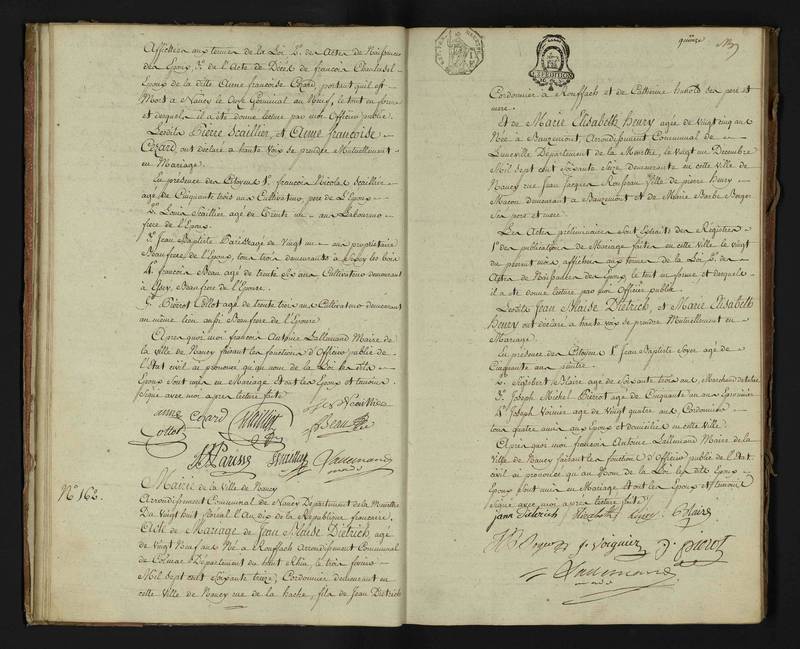 Affiches aux termes de la Loi 2°. des Actes de Naissances
des Epoux, 3°. de l'Acte de Décès de françois Chanteret
Epoux de la ditte Anne françoise Cézard, portant qu'il est
Mort à Nancy le onze Germinal an Neuf, le tout en forme
et desquels il a été donné lecture par moi Officier public.
Lesdits Pierre Scaillier, et Anne françoise
Cézard ont déclaré a haute voix se prendre Mutuellement
en Mariage.
En présence des Citoyens 1°. françois Nicolas Scaillier
agé de Cinquante trois ans Cultivateur, pere de l'Epoux
2°. Louis Scaillier agé de trente un ans Laboureur
frere de l'Epoux.
3°. Jean Baptiste Parisse agé de Vingt un ans proprietaire
Beaufrere de l'Epoux, tous trois demeurants à
4°. françois Beau agé de trente six ans Cultivateur demeurant
à Essey, Beaufrere de l'Epouse.
5°. Pierrot Collot agé de trente trois ans Cultivateur demeurant
au même lieu aussi Beaufrere de l'Epouse
Après quoi moi françois Antoine Lallemand Maire de
la Ville de Nancy faisant les fonctions d'Officier public de
l'Etat civil ai prononcé qu'au nom de la Loi lesdits
Epoux sont unis en Mariage et ont les Epoux et temoins
signé avec moi après lecture faite
anne Cézard Scaillier
Collot Beau
Parisse Lallemand
N°. 162.
Mairie de la Ville de Nancy
Arrondissement Communal de Nancy Département de la Meurthe
Du Vingt huit floréal l'An dix de la République française,
Acte de Mariage de Jean Blaise Dietrich, agé
de Vingt Neuf ans Né à Rouffach arrondissement Communal
de Colmar Département du haut Rhin, le trois fevrier
Mil sept cent Soixante treize, Cordonnier demeurant en
cette Ville de Nancy rue de la hache, fils de Jean Dietrich
quinze
EXPEDITION
Cordonnier à Rouffach et de Catherine hunold ses pere et
mere.
Et de Marie Elisabeth Henry agée de Vingt cinq ans
Née à Bauzemont, Arrondissement Communal de
Luneville Département de la Meurthe, le vingt un Decembre
Mil sept cent Soixante Seize, demeurante en cette Ville de
Nancy rue Jean Jacques Rousseau fille de pierre Henry
Macon demeurant à Bauzemont et de Marie Barbe Boyer
Ses pere et mere.
Les Actes préliminaires sont Extraits des Régistres
1°. des publications de Mariage faites en cette Ville le vingt
du présent mois affichées aux termes de la Loi 2°. des
Actes de Naissances des Epoux, le tout en forme, et desquels
il a été donné lecture par moi Officier public.
Lesdits Jean Blaise Dietrich, et Marie Elisabeth
Henry ont déclaré a haute voix se prendre Mutuellement en
Mariage.
En présence des Citoyens 1°. Jean Baptiste Soyer agé de
Cinquante ans peintre.
2°. Sigisbert Blaire agé de Soixante trois ans Marchand de tabac
3°. Joseph Michel Pierrot agé de Cinquante un ans
4°. Joseph Voinier agé de Vingt quatre ans Cordonnier
tous quatre amis aux Epoux et domiciliés en cette Ville.
Après quoi moi françois Antoine Lallemand Maire de la
Ville de Nancy faisant les fonctions d'Officier public de l'Etat
civil ai prononcé qu'au Nom de la Loi lesdits Epoux
sont unis en Mariage et ont les Epoux et temoins
signé avec moi après lecture faite
jean Dietrich Elisabeth henry Blaire
Soyer j. Voignier j. pierot
Lallemand